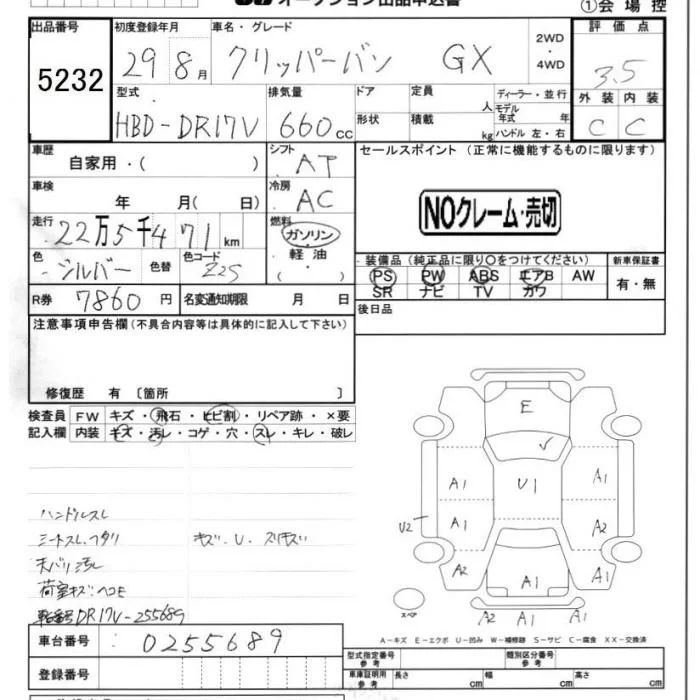 オークション出品申込書
①会場控
出品番号 初度登録年月 車名・グレード 2WD・4WD 評価点
5232 29 8月 クリッパーバン GX 3.5
型式 排気量 ドア 定員 人 ディーラー・並行 外装 内装
HBD-DR17V 660cc 形状 積載 kg モデル年式 年 ハンドル 左・右 C C
車歴 自家用・( ) シフト AT セールスポイント (正常に機能するものに限ります)
車検 年 月( 日) 冷房 AC
NOクレーム・売切
走行 22万5千471km 燃料 ガソリン・軽油・( )
色 シルバー 色替 色コード Z25
装備品 (純正品に限り○をつけてください) 新車保証書
PS PW ABS エアB AW 有・無
SR ナビ TV カワ
R券 7860円 名変通知期限 月 日
後日品
注意事項申告欄(不具合内容等は具体的に記入して下さい)
修復歴 有 〔箇所 〕
検査員 FW キズ・飛石・ヒビ割・リペア跡・×要
記入欄 内装 キズ・汚レ・コゲ・穴・スレ・キレ・破レ
ハンドルスレ
シートスレ、フタリ キズ・U・スリキズ
天バリ汚レ
荷室キズ・ヘコミ
車台番号DR17V-255689
E
U1
A1 A1
A1 A2
U2
A2 A1 A1
スペア A2 A1 A1
A-キズ E-エクボ U-凹み W-補修跡 S-サビ C-腐食 XX-交換済
車台番号 0255689
型式指定番号 参考 類別区分番号 参考
登録番号
車庫証明用 参考 長さ cm 幅 cm 高さ cm